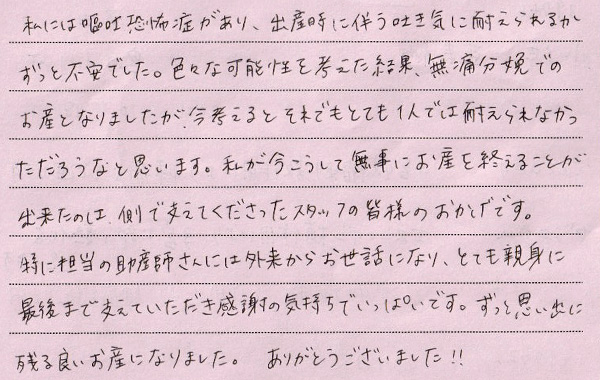 私には嘔吐恐怖症があり、出産時に伴う吐き気に耐えられるか
ずっと不安でした。色々な可能性を考えた結果、無痛分娩での
お産となりましたが、今考えるとそれでもとても1人では耐えられなかっ
ただろうなと思います。私が今こうして無事にお産を終えることが
出来たのは、側で支えてくださったスタッフの皆様のおかげです。
特に担当の助産師さんには外来からお世話になり、とても親身に
最後まで支えていただき感謝の気持ちでいっぱいです。ずっと思い出に
残る良いお産になりました。 ありがとうございました!!